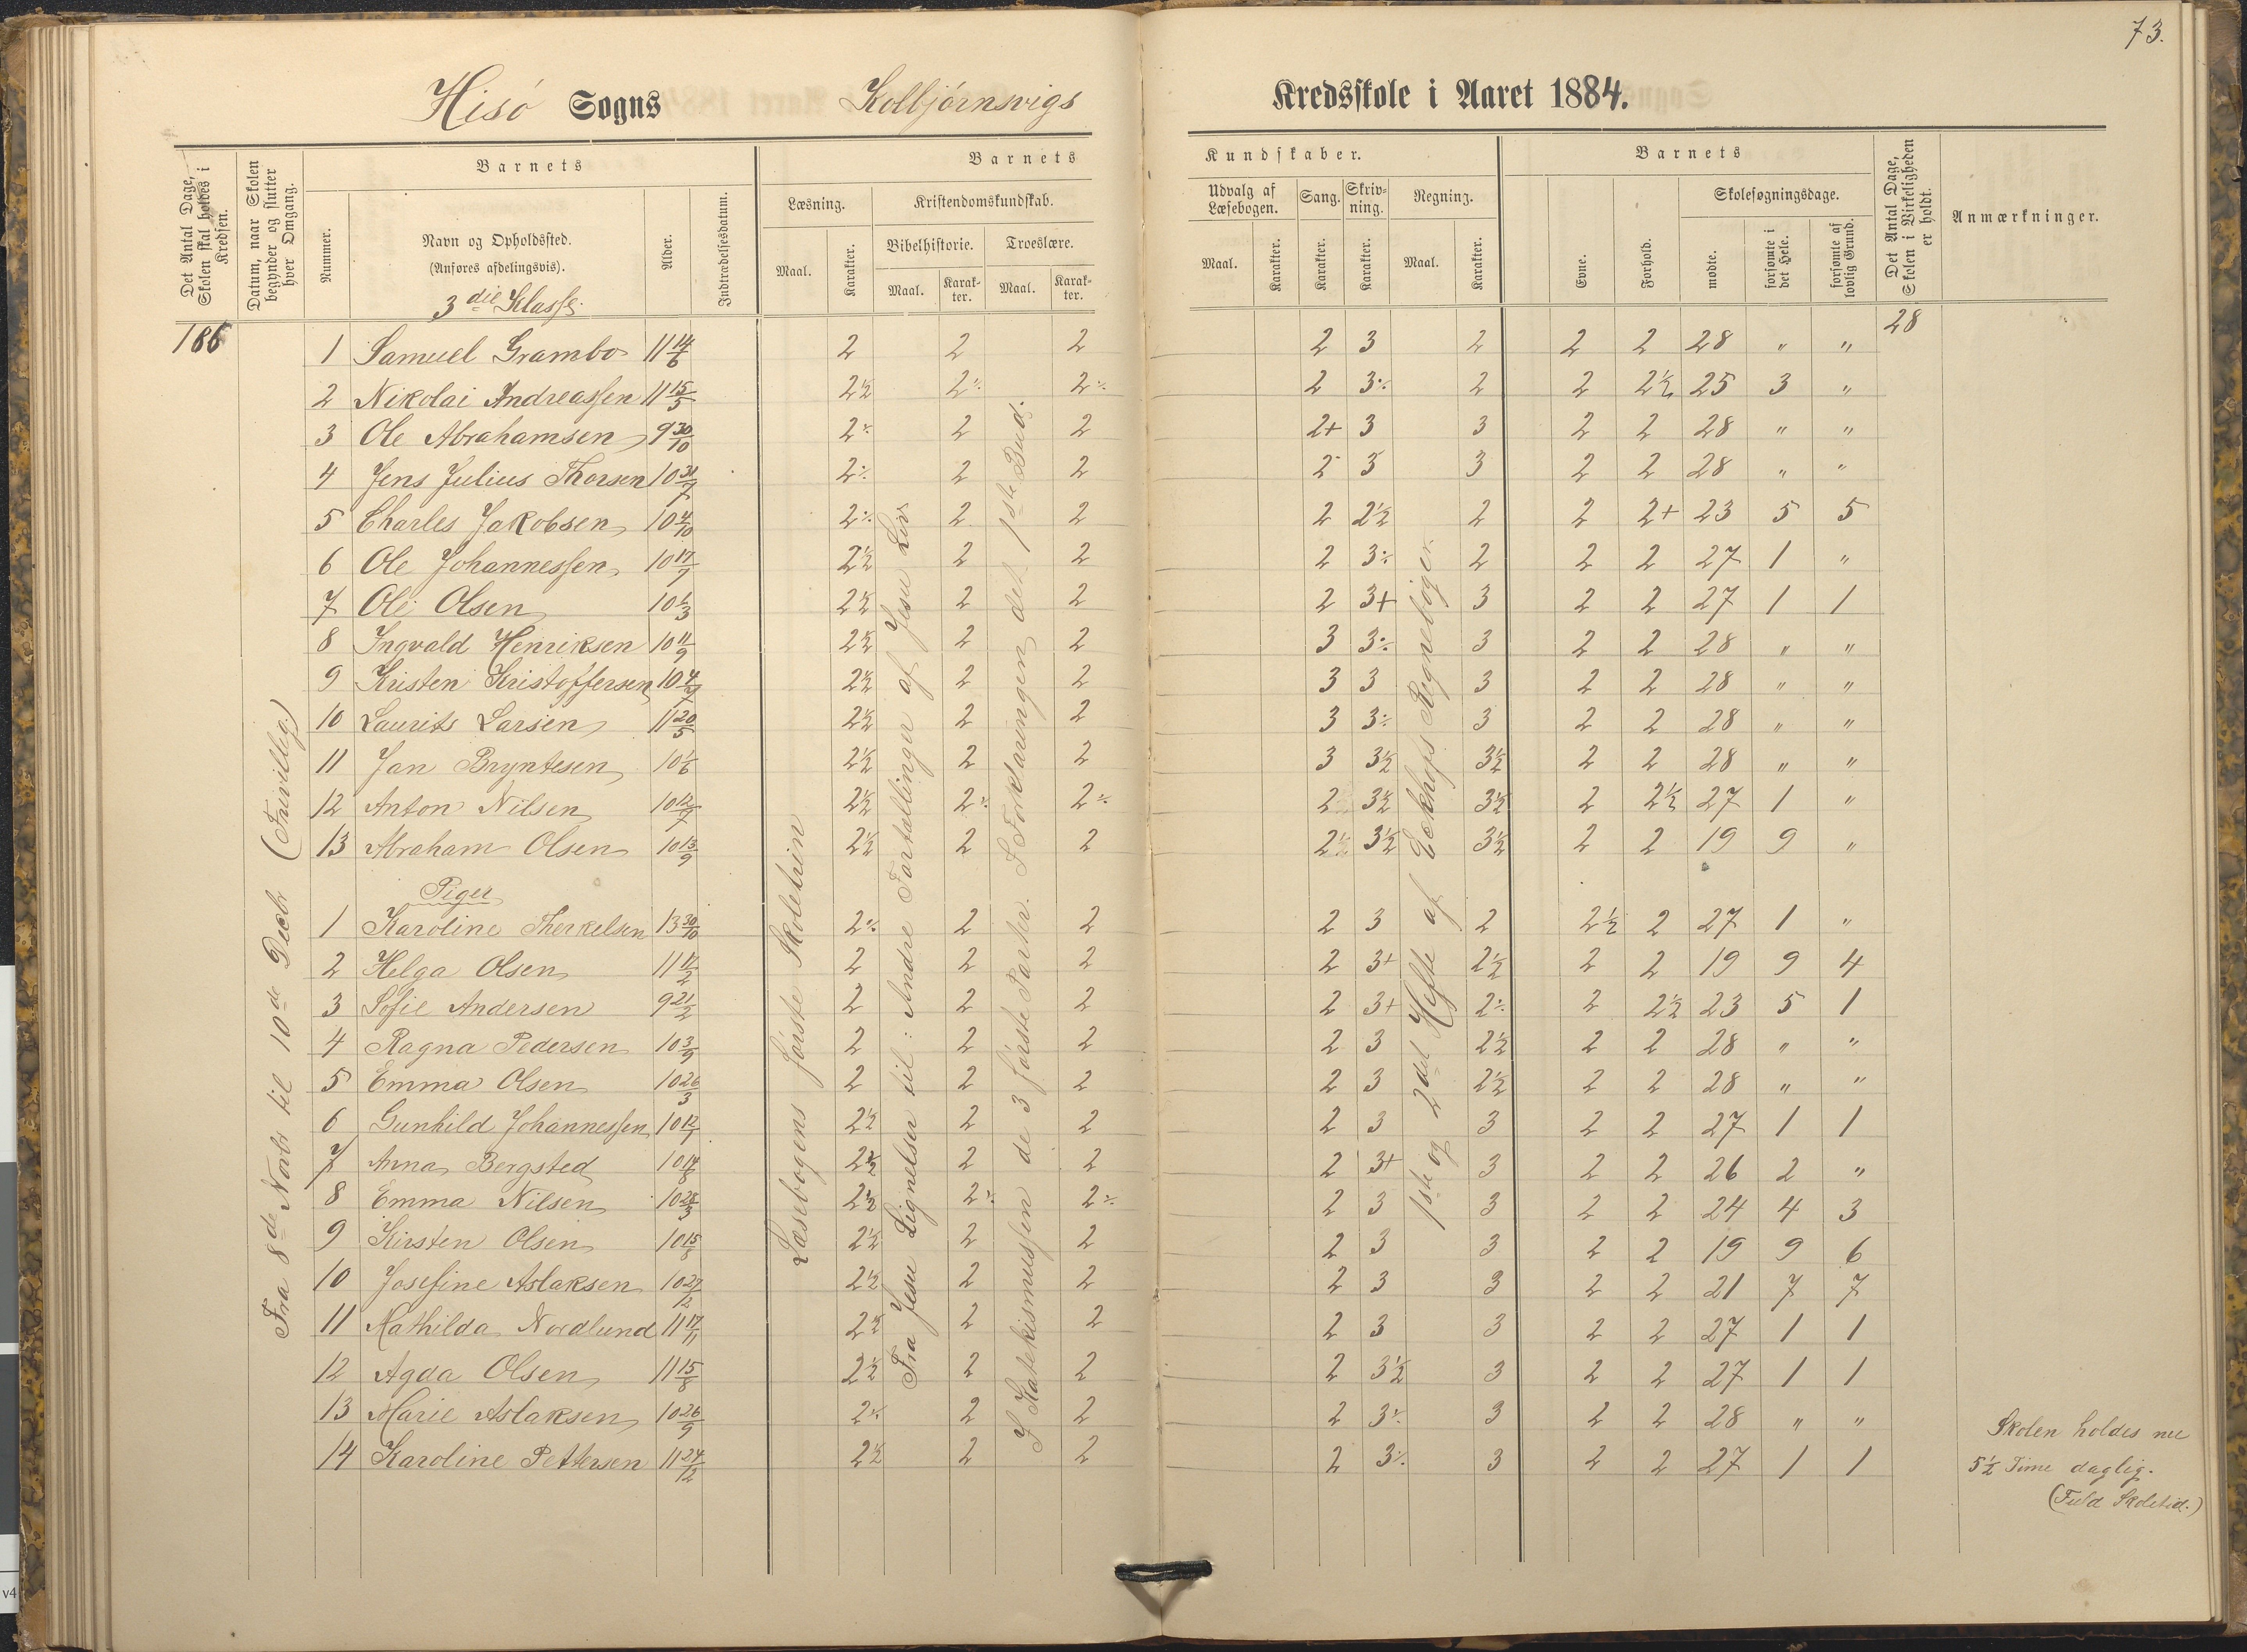 73.
Hisö Sogns Kolbjörnsvigs Kredsskole i Aaret 1884.
Det Antal Dage, Skolen skal holdes i Kredsen.
Datum, naar Skolen begynder og slutter hver Omgang.
Barnets
Nummer.
Navn og Opholdssted.
(Anføres afdelingsvis).
3die Klasse.
Alder.
Indtrædelsesdatum.
Barnets Kundskaber.
Læsning.
Maal.
Karakter.
Kristendomskundskab.
Bibelhistorie.
Maal.
Karakter.
Troeslære.
Maal.
Karakter.
Udvalg af Læsebogen.
Maal.
Karakter.
Sang.
Karakter.
Skrivning.
Karakter.
Regning.
Maal.
Karakter.
Barnets
Evne.
Forhold.
Skolesøgningsdage.
mødte.
forsømte i det Hele.
forsømte af lovlig Grund.
Det Antal Dage, Skolen i Virkeligheden er holdt.
Anmærkninger.
186
Fra 8de Novbr til 10de Decbr (Frivillig.)
Læsebogens første Skoletrin
Fra Jesu Lignelser til: Andre Fortællinger af Jesu Liv.
I Katekismussen de 3 første Parter. I Forklaringen det 1ste Bud.
1ste og 2det Hefte af Eckhofs Regnebøger.
1 Samuel Grambo 11 14/6 2 2 2 2 3 2 2 2 28 " " 28
2 Nikolai Andreassen 11 15/5 2½ 2÷ 2÷ 2 3÷ 2 2 2½ 25 3 "
3 Ole Abrahamsen 9 30/10 2÷ 2 2 2+ 3 3 2 2 28 " "
4 Jens Julius Thorsen 10 31/7 2÷ 2 2 2 3 3 2 2 28 " "
5 Charles Jakobsen 10 4/10 2÷ 2 2 2 2½ 2 2 2+ 23 5 5
6 Ole Johannessen 10 17/7 2½ 2 2 2 3÷ 2 2 2 27 1 "
7 Ole Olsen 10 6/3 2½ 2 2 2 3+ 3 2 2 27 1 1
8 Ingvald Henriksen 10 11/9 2½ 2 2 3 3÷ 3 2 2 28 " "
9 Kristen Kristoffersen 10 4/7 2½ 2 2 3 3 3 2 2 28 " "
10 Laurits Larsen 11 20/5 2½ 2 2 3 3÷ 3 2 2 28 " "
11 Jan Bryntesen 10 1/6 2½ 2 2 3 3½ 3½ 2 2 28 " "
12 Anton Nilsen 10 12/7 2½ 2÷ 2÷ 2 3½ 3½ 2 2½ 27 1 "
13 Abraham Olsen 10 13/9 2½ 2 2 2½ 3½ 3½ 2 2 19 9 "
Piger
1 Karoline Therkelsen 13 30/10 2÷ 2 2 2 3 2 2½ 2 27 1 "
2 Helga Olsen 11 17/2 2 2 2 2 3+ 2½ 2 2 19 9 4
3 Sofie Andersen 9 21/2 2 2 2 2 3+ 2÷ 2 2½ 23 5 1
4 Ragna Pedersen 10 3/9 2 2 2 2 3 2½ 2 2 28 " "
5 Emma Olsen 10 26/3 2 2 2 2 3 2½ 2 2 28 " "
6 Gunhild Johannessen 10 12/7 2½ 2 2 2 3 3 2 2 27 1 1
7 Anna Bergsted 10 14/8 2½ 2 2 2 3+ 3 2 2 26 2 "
8 Emma Nilsen 10 28/3 2½ 2÷ 2÷ 2 3 3 2 2 24 4 3
9 Kirsten Olsen 10 15/8 2½ 2 2 2 3 3 2 2 19 9 6
10 Josefine Aslaksen 10 27/12 2½ 2 2 2 3 3 2 2 21 7 7
11 Mathilda Nordlund 11 17/11 2½ 2 2 2 3 3 2 2 27 1 1
12 Agda Olsen 11 15/8 2½ 2 2 2 3½ 3 2 2 27 1 1
13 Marie Aslaksen 10 26/9 2÷ 2 2 2 3÷ 3 2 2 28 " "
14 Karoline Pettersen 11 24/12 2½ 2 2 2 3÷ 3 2 2 27 1 1
Skolen holdes nu
5½ Time daglig.
(Fuld Skoletid.)
v4